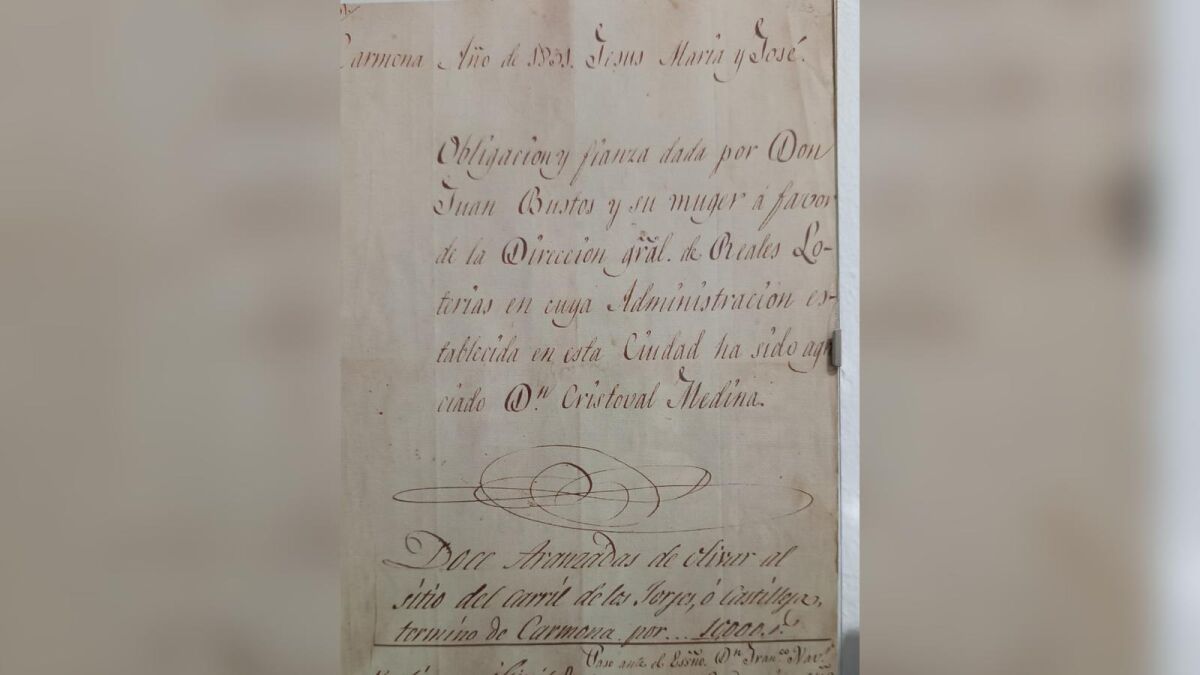 Carmona Año de 1831. Jesus Maria y José.
Obligacion y fianza dada por Don
Juan Bustos y su muger á favor
de la Direccion gral. de Reales Lo-
terias en cuya Administracion es-
tablecida en esta Ciudad ha sido agra
ciado Dn. Cristoval Medina.
Doce Aranzadas de olivar al
sitio del carril de los Jorjes, ó Castilleja,
termino de Carmona por... 10,000 r.s
Paso ante el Essño. Dn Franco. Nav.